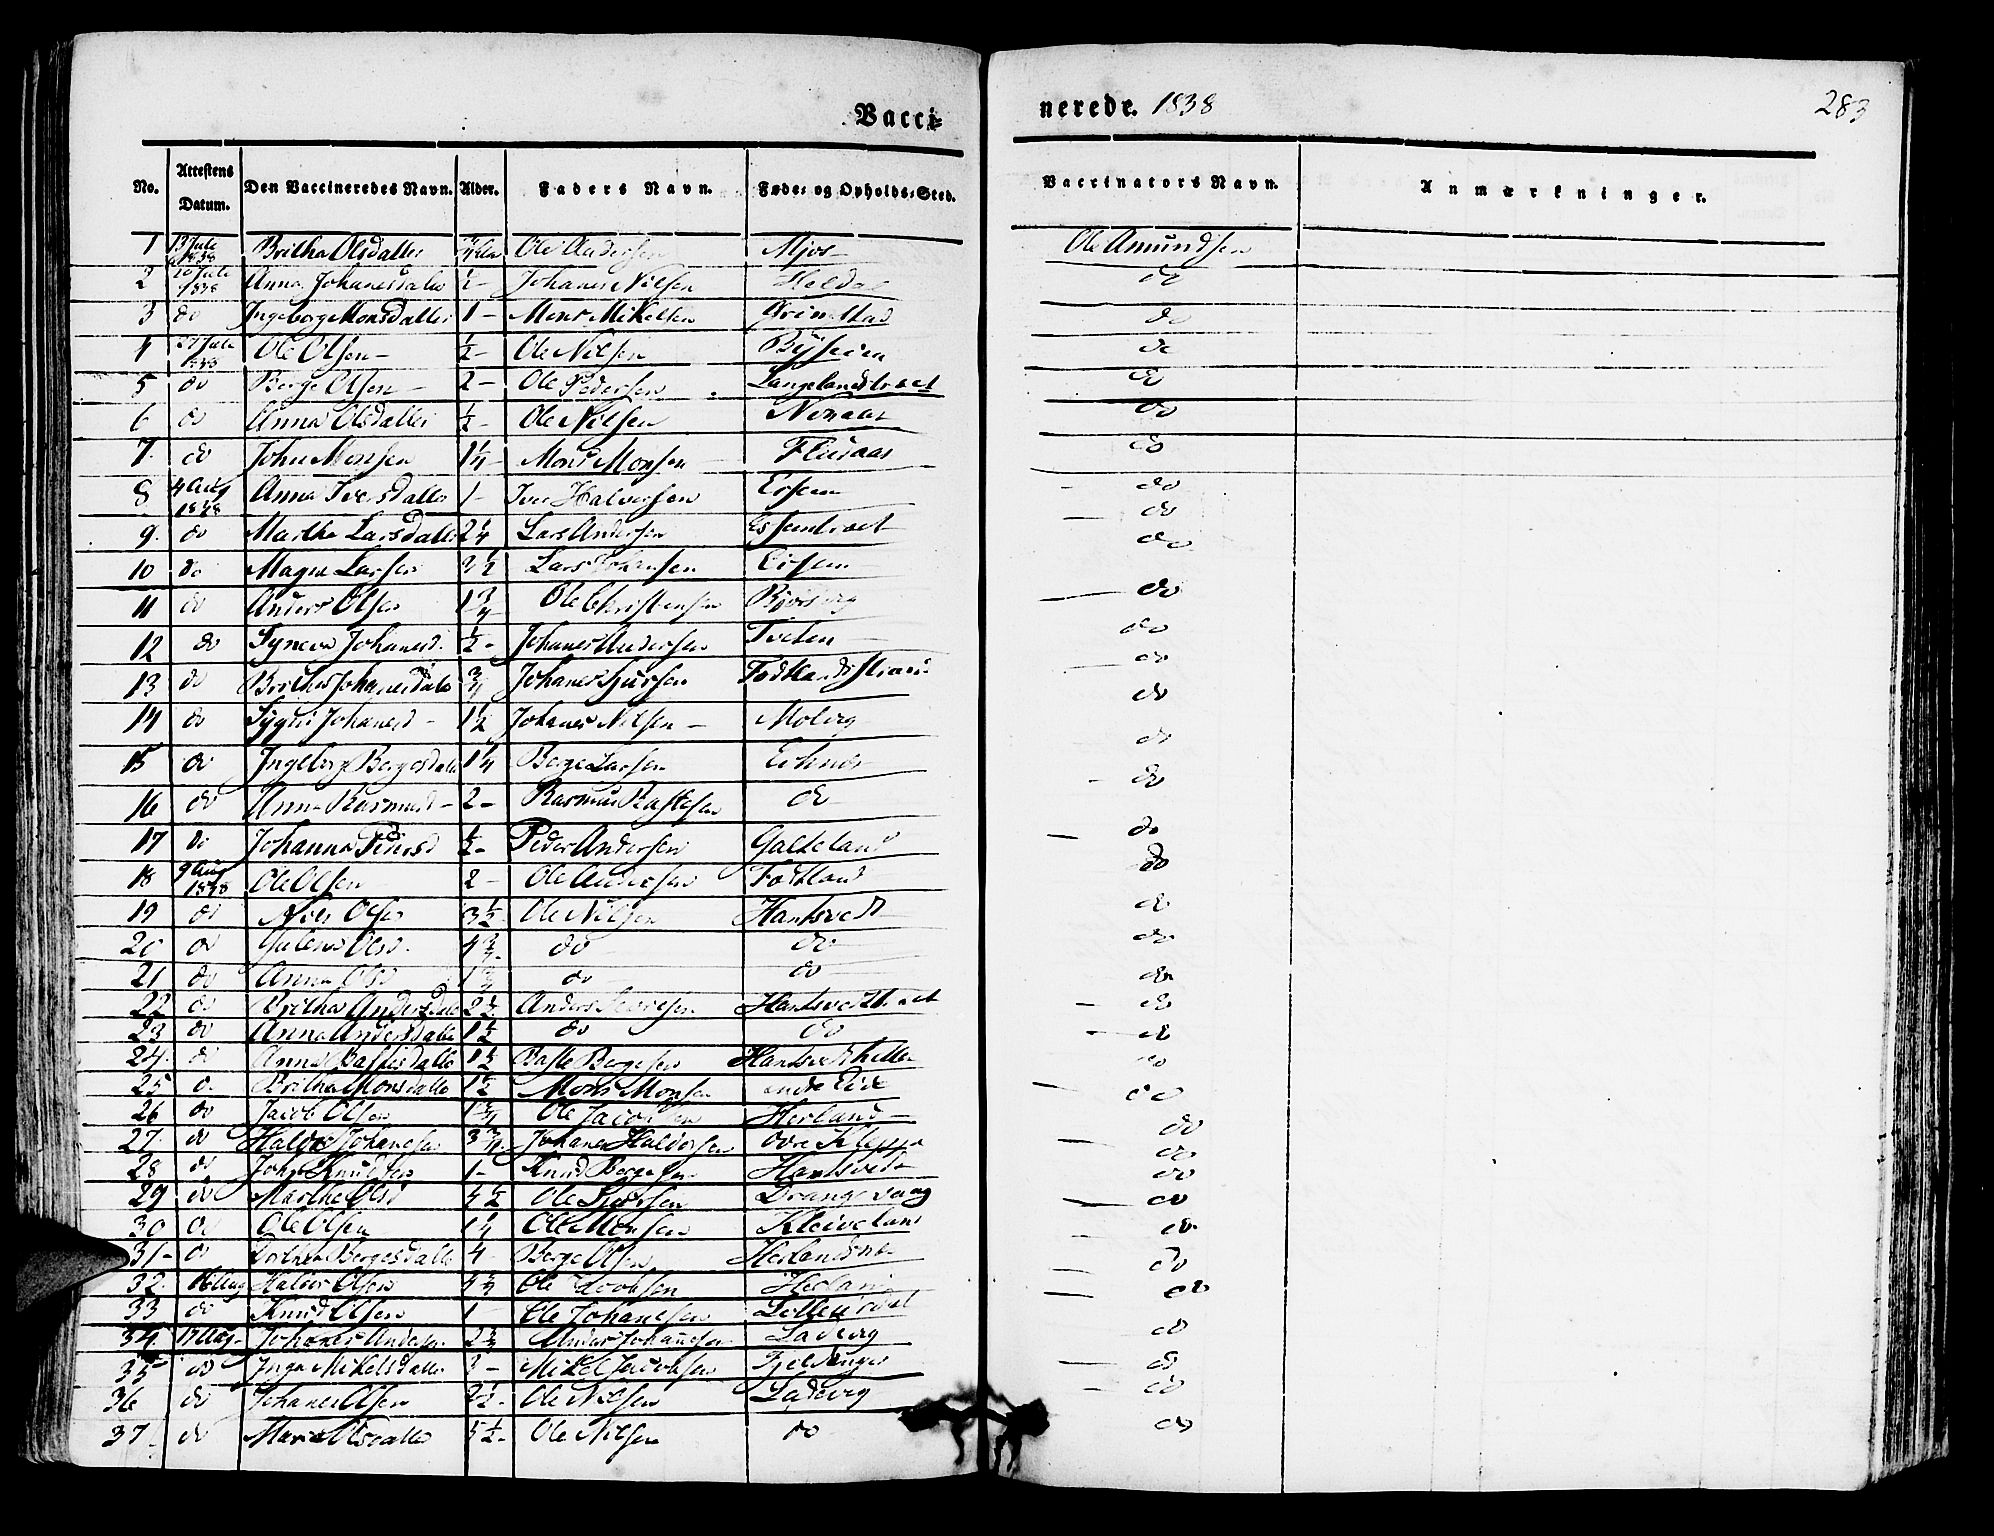 Vacci-
nerede. 1838
283
No. Attestens Datum. Den Vaccineredes Navn. Alder. Faders Navn. Føde- og Opholds-Sted. Vaccinators Navn. Anmærkninger.
1 13 Juli 1838 Britha Olsdatter 3/4 Ole Andersen Mjos Ole Amundsen
2 20 Juli 1838 Anna Johanesdatter 1/2 - Johanes Nilsen Heldal do
3 do Ingeborg Monsdatter 1 - Mons Mikelsen Grimstad do
4 27 Juli 1838 Ole Olsen - 1/2 - Ole Nilsen do
5 do Berge Olsen - 2 - Ole Pedersen Langelandstræet do
6 do Anna Olsdatter 1/2 - Ole Nilsen do
7 do John Monsen 1 1/4 - Mons Monsen do
8 4 Aug 1838 Anna Iversdatter 1 - Iver Halversen do
9 do Martha Larsdatter 2 1/4 Lars Andersen do
10 do Magne Larsen 2 1/2 Lars Johansen do
11 do Anders Olsen 1 3/4 Ole Christensen do
12 do Syneva Johanesd. 1/2 - Johanes Andersen Tveten do
13 do Britha Johanesdatter 3/4 Johanes Sjursen do
14 do Sygni Johanesd - 1 1/2 Johanes Nilsen - Moberg do
15 do Ingeborg Bergesdatter 1 1/4 Berge Larsen do
16 do Anna Rasmusd - 2 - Rasmus do do
17 do Johanna Pedersd 1/2 - Peder Andersen Galteland do
18 9 Aug 1838 Ole Olsen 2 - Ole Andersen Fodtland do
19 do Nils Olsen 3 1/2 - Ole Nilsen Hantsvedt do
20 do Olsd. 4 do do do
21 do Anna Olsd 1 do do do
22 do Britha Andersdatter 2 1/2 Anders Hantsvedttræet do
23 do Anna Andersdatter 1 1/2 do do do
24 do Anna Bastesdatter 1 1/2 Baste Bergesen do
25 do Britha Monsdatter 1 1/2 Mons Monsen do
26 do Jacob Olsen 1 3/4 Ole Jacobsen Herland do
27. do Haldor Johanesen 3 3/4 Johanes Haldorsen do
28 do John Knudsen 1 - Knud Bergesen Hantsvedt do
29 do Martha Olsd 4 1/2 Ole Sjursen Drangsvaag do
30 do Ole Olsen 1 1/4 Ole Monsen Kleiveland do
31 - do Bergesdatter 4 - Berge Olsen do
32. 16 Aug Olsen 4 Ole Jacobsen Herland do
33 do Knud Olsen 1 - Ole Johanesen do
34 17 Aug - Johanes Andersen 2 Anders Johannesen Ladvig do
35 do Inga Mikelsdatter - Mikel Jacobsen Fjeldanger do
36 do Johanes Olsen 2 1/2 - Ole Nilsen Ladevig do
37. do Olsdatter 5 1/2 - Ole Nilsen do do